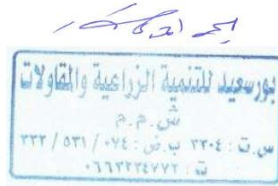 بورسعيد للتنمية الزراعية والمقاولات
ش.م.م
س.ت: ٢٢٠٤ ب.ض: ٠٧٤ / ٥٣١ / ٢٢٢
ت: ٠٦٦٣٢٣٤٧٧٢